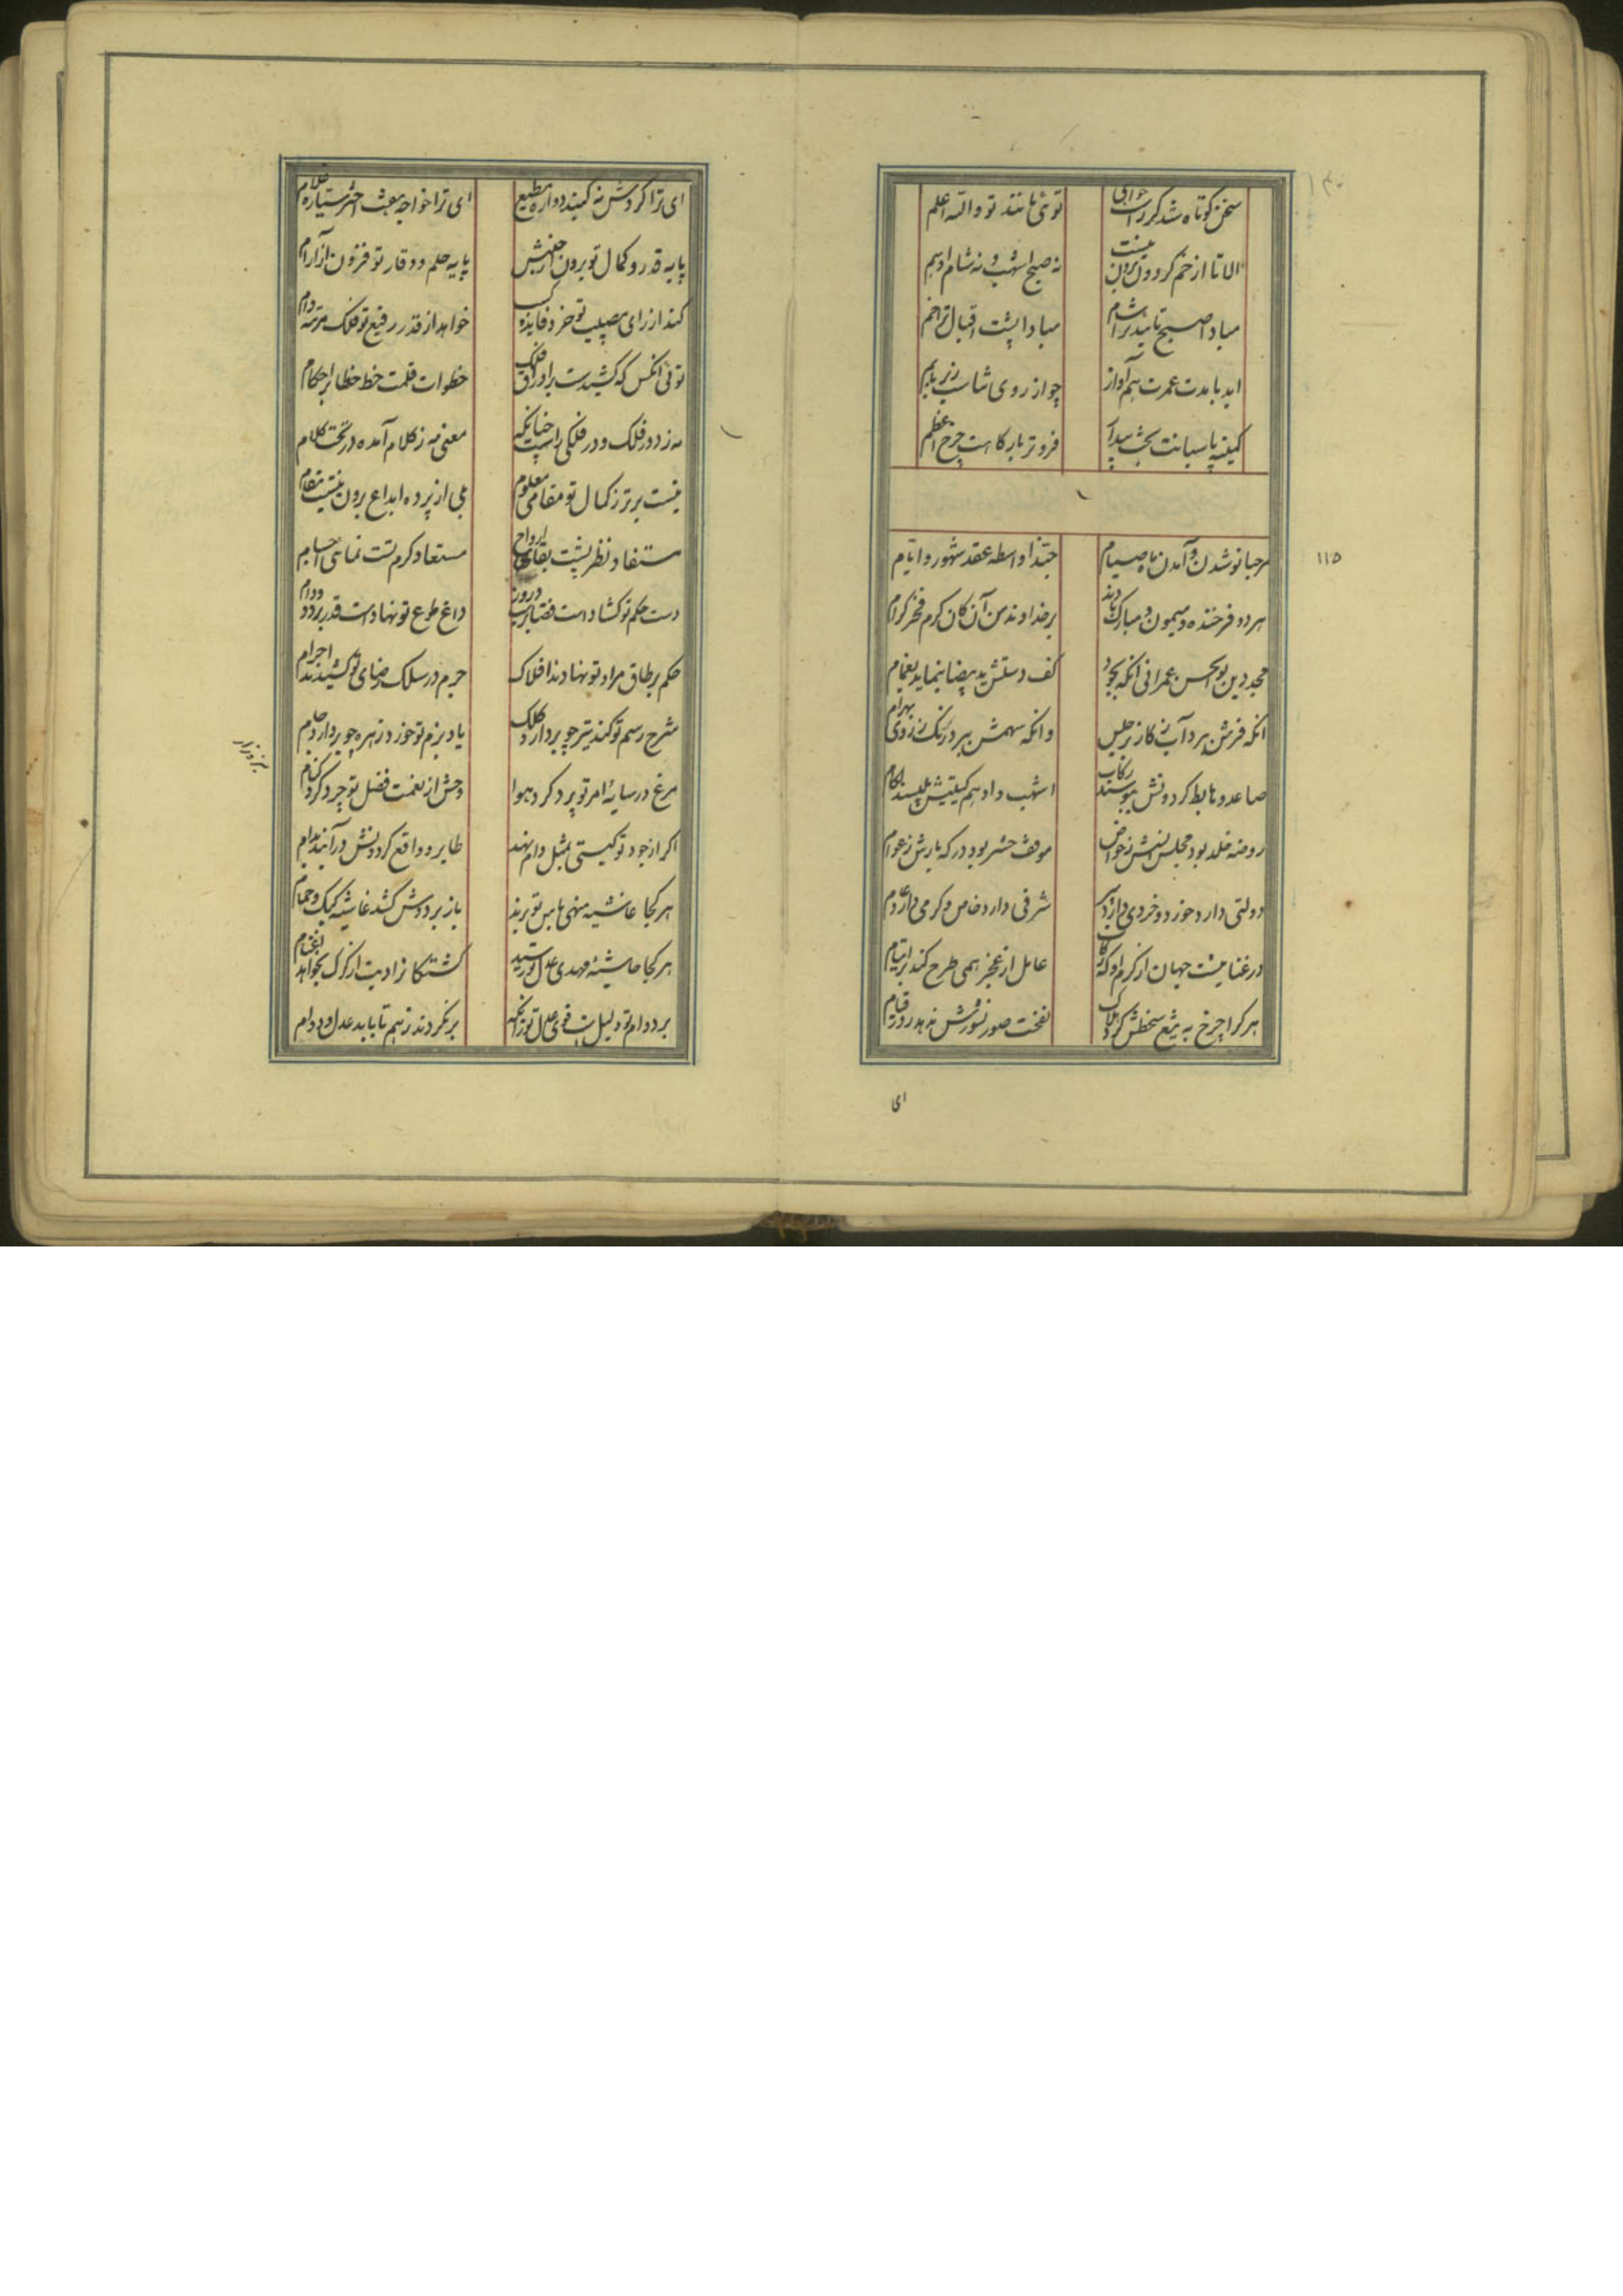 سخن کوتاه شد کر راست خواهی توئی مانند تو والله اعلم
الا تا از خم کردون برون نیست نه صبح اشهب و نه شام ادهم
مبادا صبح تاییدترا شام مبادا پشت اقبال ترا خم
ابد با مدت عمرت هم آواز چو از روی تناسب زیر با بم
کمینه پاسبانت بخت بیدار فروتر بارکاهت چرخ اعظم
مرحبا نو شدن و آمدن ماه صیام حبذا واسطه عقد شهور و ایام
هر دو فرخنده و میمون و مبارک بادند بر خداوند من آن کان کرم فخر کرام
مجد دین بوالحسن عمرانی آنکه بجود کف دستش ید بیضا بنماید بغمام
آنکه فرش ببرد آب ز کار برجیس وانکه سهمش ببرد رنک ز روی بهرام
صاعد و هابط کردونش ببوسند رکاب اشهب و ادهم کیتیش بلیسند لکام
روضه خلد بود مجلس انسش ز خواص موقف حشر بود درکه بارش ز عوام
دولتی دارد و خردی شرفی دارد خاص و کرمی دارد عام
در غنا نیست جهان از کرم او که عامل از عجز همی طرح کند بر ایتام
هر کرا چرخ به تیغ سخطش کرد هلاک نفخت صور نشورش ندهد روز قیام
ای
۱۱۵
ای ترا کردش نه کنبد دوار مطیع ای ترا خواجه هفت اختر سیاره غلام
پایه قدر و کمال تو برون از جنبش پایه حلم و وقار تو فزون از آرام
کند از رای مصیب تو خرد فایده کسب خواهد از قدر رفیع تو فلک مرتبه وام
توئی آنکس که کشیدست بر اوراق فلک خطوات قلمت خط خطا بر احکام
نه ز دور فلک و در فلکی راست چنانکه معنیء نه ز کلام آمده در تحت کلام
نیست برتر ز کمال تو مقامی معلوم بلی از پرده ابداع برون نیست مقام
مستفاد نظر تست بقای ارواح مستعاد کرم تست نمای اجسام
دست حکم تو کشادست قضا بر شب و روز داغ طوع تو نهادست قدر بر دد و دام
حکم بر طاق مراد تو نهادند افلاک جرم در سلک رضای تو کشیدند اجرام
شرح رسم تو کند تیر چو بردارد کلک یاد بزم تو خورد زهره چو بردارد جام
مرغ در سایه امر تو پرد کرد هوا وحش از نعمت فضل تو چرد کرد کنام
اکر از جود تو کیتی بمثل دام نهد طایر و واقع کردونش درآیند بدام
هر کجا غاشیه منهی باس تو برند باز بر دوش کشد غاشیه کبک و حمام
هر کجا حاشیه مهدی عدل تو رسید کشتکانرا دیت از کرک بخواهد اغنام
بر دوام تو دلیل است قوی عدل تو زانکه بر نکردند ز هم تا بابد عدل و دوام